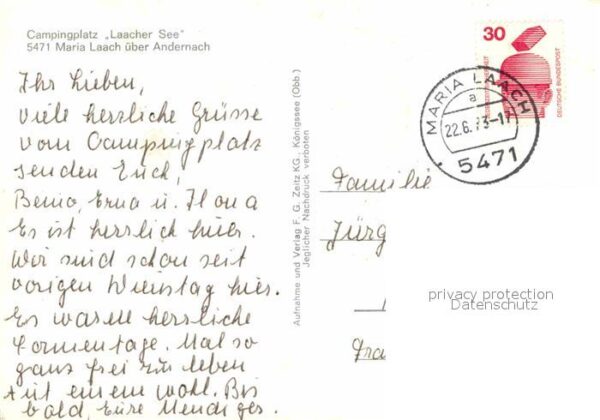 Campingplatz „Laacher See“
5471 Maria Laach über Andernach
Ihr Lieben,
viele herzliche Grüsse
vom Campingplatz
senden Euch,
Benno, Erna u. Ilona
Es ist herrlich hier.
Wir sind schon seit
vorigen Dienstag hier.
Es waren herrliche
Sonnentage. Mal so
ganz frei zu leben
tut einem wohl. Bis
bald, Eure
Aufnahme und Verlag F. G. Zeitz KG., Königssee (Obb.)
Jeglicher Nachdruck verboten
30
DEUTSCHE BUNDESPOST
MARIA LAACH
a
22.6.73-17
5471
Familie
Jürg
privacy protection
Datenschutz